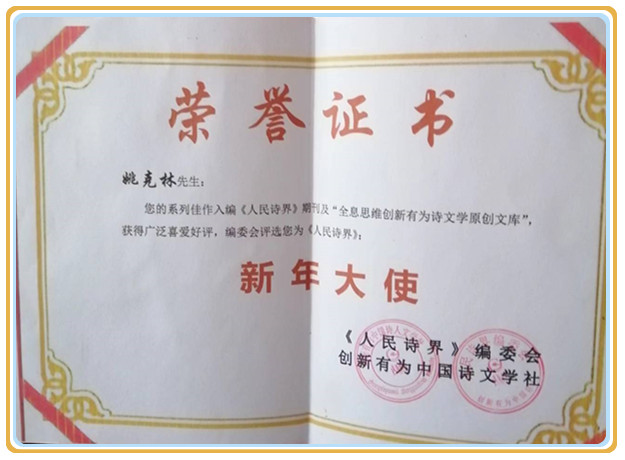 荣誉证书
姚克林先生：
您的系列佳作入编《人民诗界》期刊及“全息思维创新有为诗文学原创文库”，
获得广泛喜爱好评，编委会评选您为《人民诗界》：
新年大使
《人民诗界》编委会
创新有为中国诗文学社